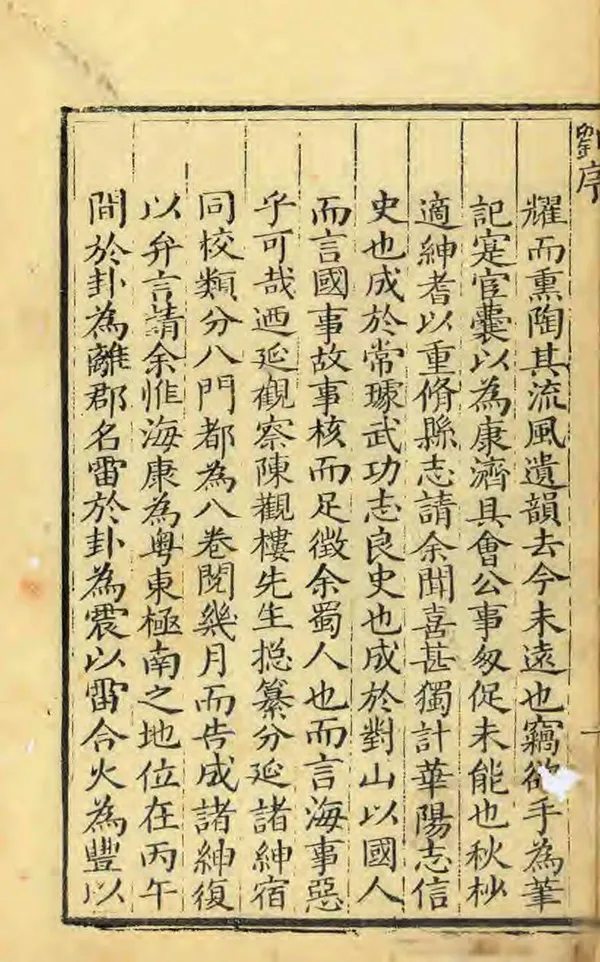 劉序
耀而熏陶其流風遺韻去今未遠也竊欲手為筆
記寔宦囊以為康濟具會公事匆促未能也秋杪
適紳耆以重脩縣志請余聞喜甚獨計華陽志信
史也成於常璩武功志良史也成於對山以國人
而言國事故事核而足徵余蜀人也而言海事惡
乎可哉迺延觀察陳觀樓先生揔纂分延諸紳宿
同校類分八門都為八卷閱幾月而告成諸紳復
以弁言請余惟海康為粵東極南之地位在丙午
間於卦為離郡名雷於卦為震以雷合火為豐以